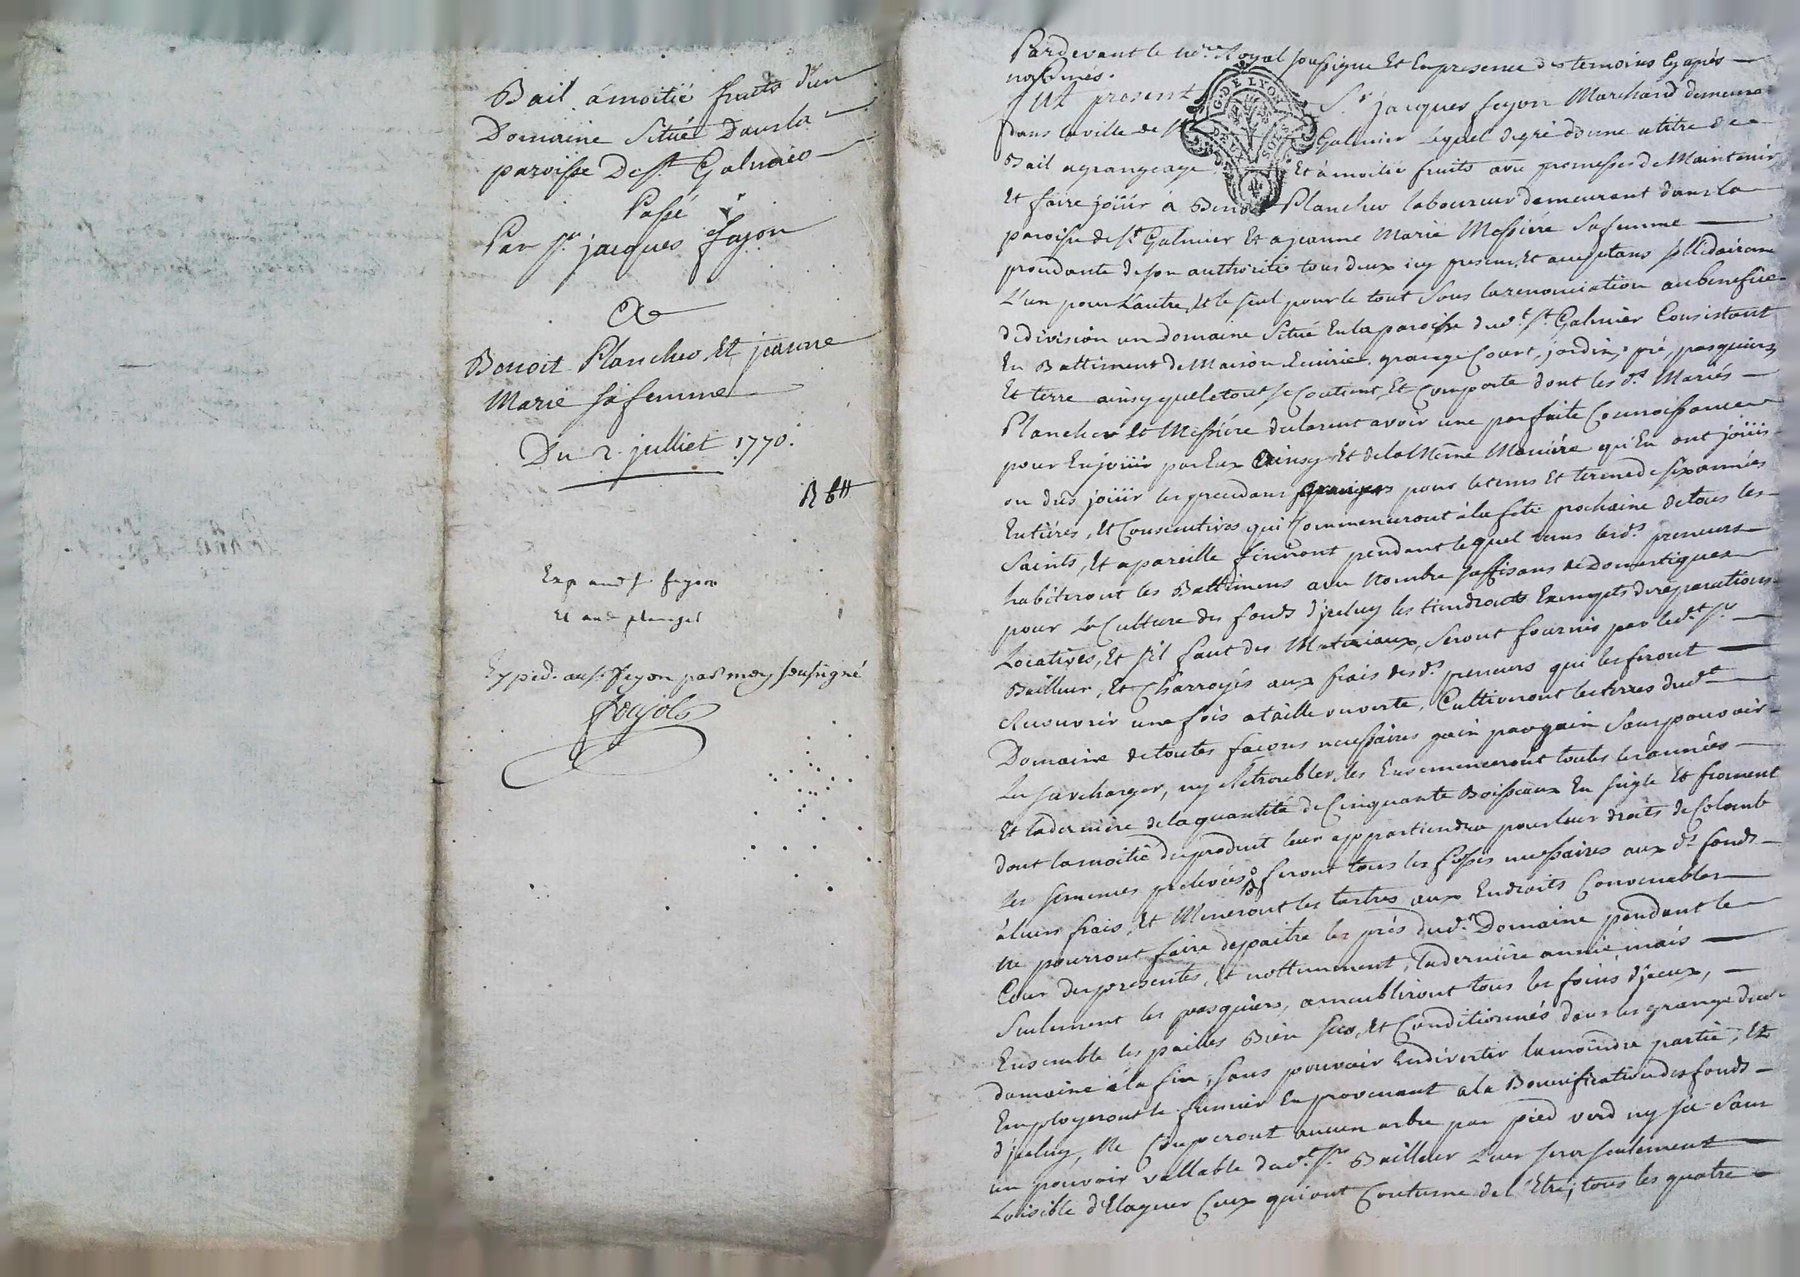 Bail à moitié fruits d'un
Domaine Situé Dans la
paroisse De St Galmier
Passé
Par Sr jacques fayon
&
Benoit Plancher Et jeanne
Marie sa femme
Du 2 julliet 1770.
Exp aud Sr fayon
Et aud plancher
Exped. au Sr fayon par moy soussigné
Pardevant le nre Royal soussigné Et En presence des temoins Cy après
nommés.
fut présent Sr jacques fayon Marchand demeurant
dans la ville de St Galmier Lequel de gré donne a titre de
Bail a grangeage Et à moitié fruits avec promesses de Maintenir
Et faire joüir a Benoit Plancher laboureur demeurant dans la
paroisse de St Galmier Et a jeanne Marie Messiére Sa femme
procedante de Son authorité tous deux icy presens, Et acceptans sollidairement
L'un pour L'autre, Et le seul pour le tout Sous la renonciation au benefice
de division un Domaine Situé En la paroisse dud. St Galmier Consistant
En Battiment de Maison Ecurie grange Court, jardin, pré, pasquiers
Et terre ainsy que le tout Se Contient, Et Comporte dont les ds Mariés
Plancher Et Messiére declarent avoir une parfaite Connoissance
pour En joüir par Eux Ainsy Et de la Même Maniére qu'En ont joüis
ou dûs joüir les precedans grangers pour le tems Et terme de six années
Entiéres, Et Consecutives qui Commenceront à la fete prochaine de tous les
Saints, Et a pareille finiront pendant lequel tems lesds preneurs
habiteront les Battimens avec Nombre suffisans de Domestiques
pour La Culture des fonds d'jceluy les tiendronts Exempts de reparations
Locatives, Et s'il faut des Materiaux, Seront fournis par led. Sr
Bailleur, Et Charroyés aux frais desds preneurs qui les feront
Recouvrir une fois a taille ouverte, Cultiveront les terres dudt
Domaine de toutes facons necessaires gain par gain Sans pouvoir
Les surcharger, ny Retroubler, les Ensemenceront toutes les années
Et la derniére de la quantité de Cinquante Boisseaux En seigle Et froment
dont la moitié du produit leur appartiendra pour leur droits de Colonb
Les semences prelevées, feront tous les fossés necessaires aux ds fonds
à leurs frais, Et Méneront les tertres aux Endroits Convenables
Ne pourront faire depaitre les prés dud. Domaine pendant le
Cour des presentes, Et nottamment, la derniére année mais
Seulement les pasquiers, ameubliront tous les foins d'jceux,
Ensemble les pailles Bien secs, Et Conditionnés dans les grange dud
domaine à la fin, sans pouvoir En divertir la moindre partie, Et
Employeront le fumier En provenant a la Bonnification des fonds
d'jceluy, Ne Couperont aucun arbre par pied verd ny sec Sans
un pouvoir vallable dud. Sr Bailleur Leur sera seulement
Loisible d'Elaguer Ceux qui ont Coutume de l'Etre, tous les quatre